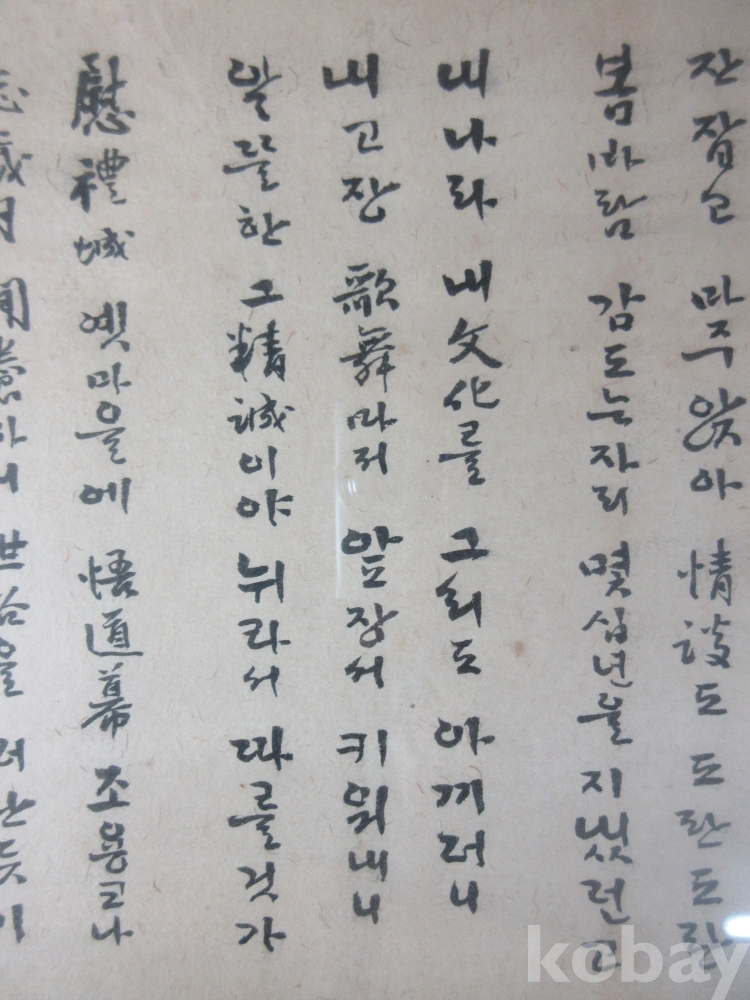 잔 잡고 마주 앉아 情談도 도란도란
봄바람 감도는 자리 몇 십년을 지냈런고
내 나라 내 文化를 그리도 아끼려니
내 고장 歌舞마저 앞장서 키워내니
알뜰한 그 精誠이야 뉘라서 따를것가
慰禮城 옛마을에 悟道幕 조용코나
歲月 世俗을 떠난듯이
kobay